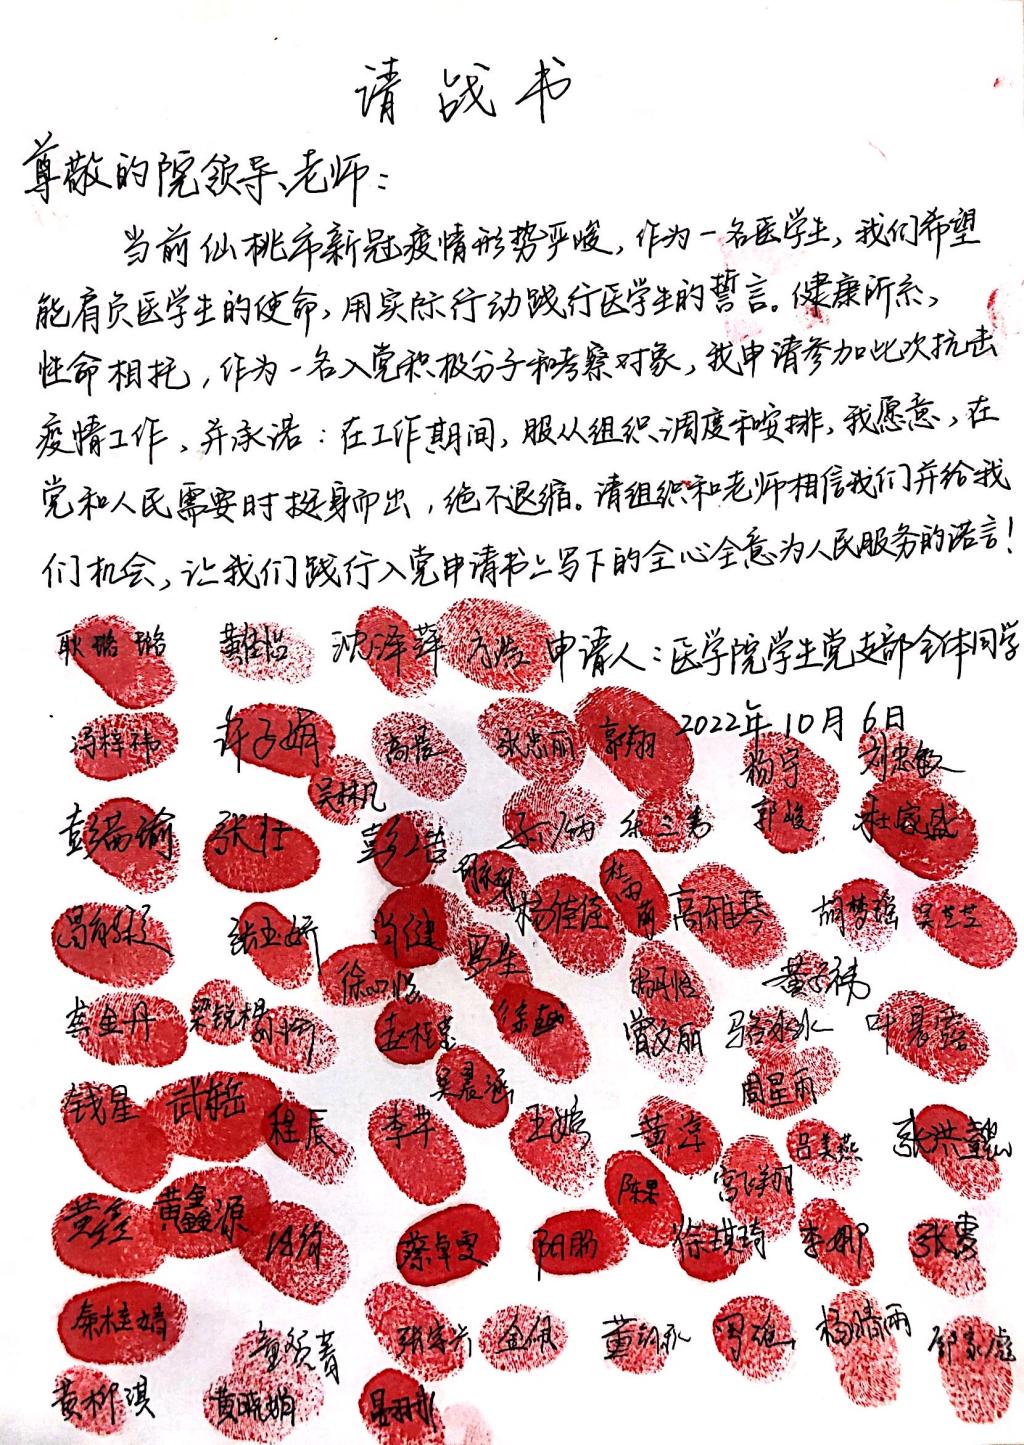 请战书
尊敬的院领导、老师：
当前仙桃市新冠疫情形势严峻，作为一名医学生，我们希望
能肩负医学生的使命，用实际行动践行医学生的誓言。健康所系，
性命相托，作为一名入党积极分子和考察对象，我申请参加此次抗击
疫情工作，并承诺：在工作期间，服从组织调度和安排，我愿意，在
党和人民需要时挺身而出，绝不退缩。请组织和老师相信我们并给我
们机会，让我们践行入党申请书上写下的全心全意为人民服务的诺言！
耿璐璐 黄佳怡 沈泽萍 方滢 申请人：医学院学生党支部全体同学
2022年10月6日
冯梓祎 许子娟 高晨 张忠丽 郭翔 杨宁 刘忠敏
吴林凡
张仕 郭峻 杜家盛
杨佳佳 高雅琴 胡梦瑶 吴芸芸
张亚娇 肖健 马星
徐 董子祎
龚金丹 梁锐 赵桂 曾文丽 骆冰冰 叶晨露
吴晨涵 周星雨
钱星 武钰 程辰 李芊 王嫣 黄淳 吕美燕 张洪
陈果 宫 翔
黄鑫 黄鑫源 蔡卓雯 阳 徐琪琦 李娜 张雪
秦桂婧 童贺菁 张 金 董 周 杨晴雨 邹家庭
黄柳淇 黄晓娟